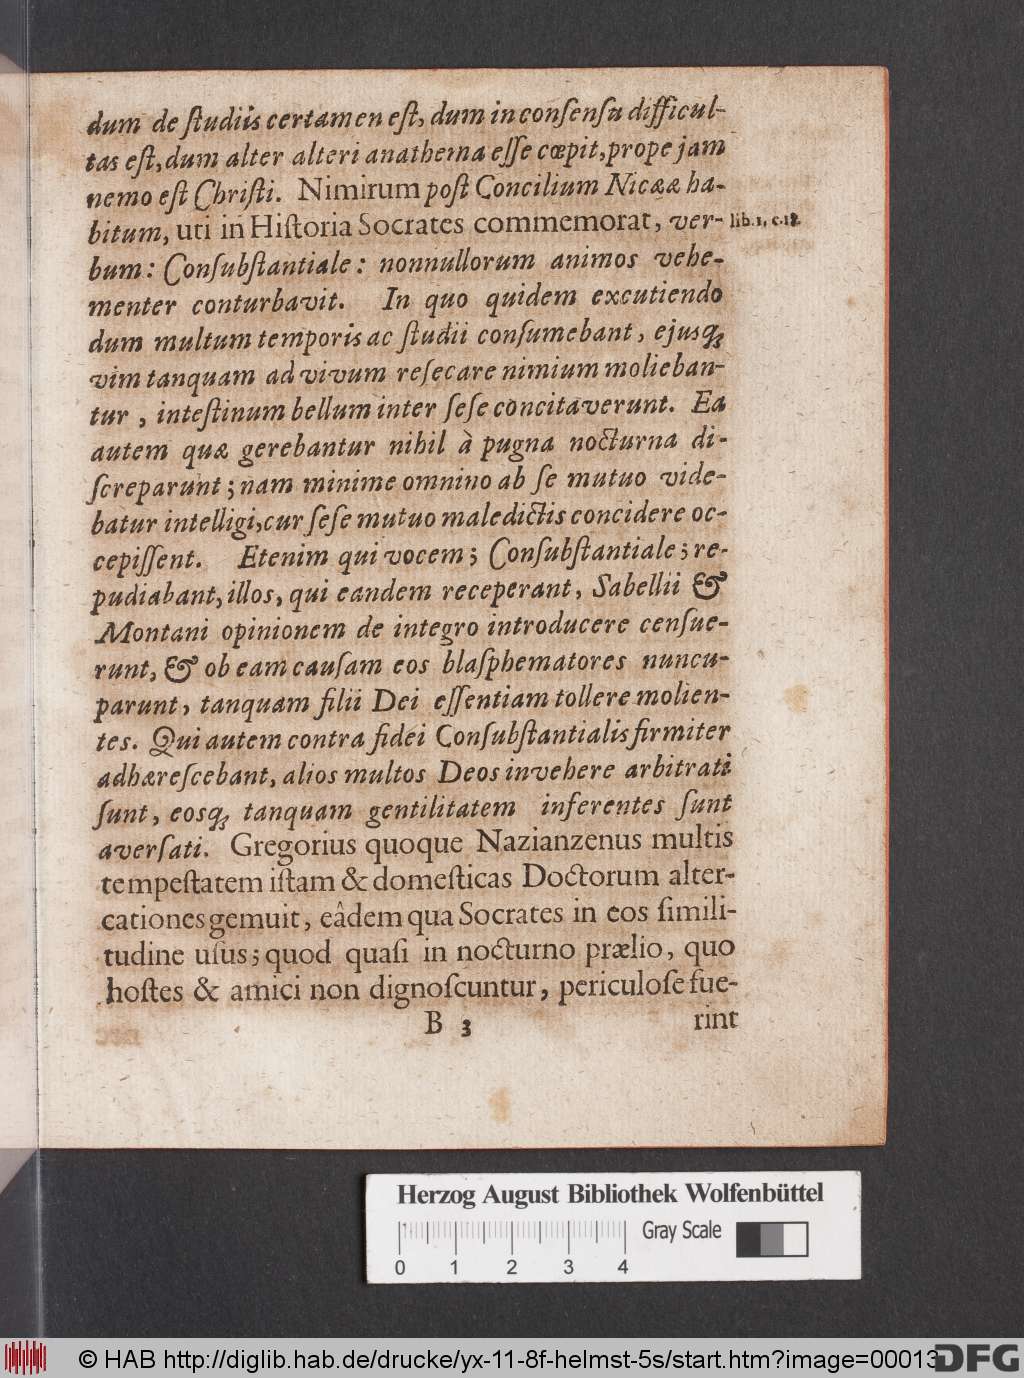 dum de ſtudiis certamen eſt, dum in conſenſu difficul-
tas eſt, dum alter alteri anathema eſſe cœpit, prope jam
nemo eſt Chriſti. Nimirum poſt Concilium Nicææ ha-
bitum, uti in Hiſtoria Socrates commemorat, ver-
lib. 1. c. 18.
bum: Conſubſtantiale: nonnullorum animos vehe-
menter conturbavit. In quo quidem excutiendo
dum multum temporis ac ſtudii conſumebant, ejusq;
vim tanquam ad vivum reſecare nimium molieban-
tur, inteſtinum bellum inter ſeſe concitaverunt. Ea
autem quæ gerebantur nihil à pugna nocturna di-
ſcreparunt; nam minime omnino ab ſe mutuo vide-
batur intelligi, cur ſeſe mutuo maledictis concidere oc-
cepiſſent. Etenim qui vocem; Conſubſtantiale; re-
pudiabant, illos, qui eandem receperant, Sabellii &
Montani opinionem de integro introducere cenſue-
runt, & ob eam cauſam eos blaſphematores nuncu-
parunt, tanquam filii Dei eſſentiam tollere molien-
tes. Qui autem contra fidei Conſubſtantialis firmiter
adhæreſcebant, alios multos Deos invehere arbitrati
ſunt, eosq; tanquam gentilitatem inferentes ſunt
averſati. Gregorius quoque Nazianzenus multis
tempeſtatem iſtam & domeſticas Doctorum alter-
cationes gemuit, eâdem qua Socrates in eos ſimili-
tudine uſus; quod quaſi in nocturno prælio, quo
hoſtes & amici non dignoſcuntur, periculoſe fue-
B 3 rint
Herzog August Bibliothek Wolfenbüttel
Gray Scale
0 1 2 3 4
© HAB http://diglib.hab.de/drucke/yx-11-8f-helmst-5s/start.htm?image=00013
DFG